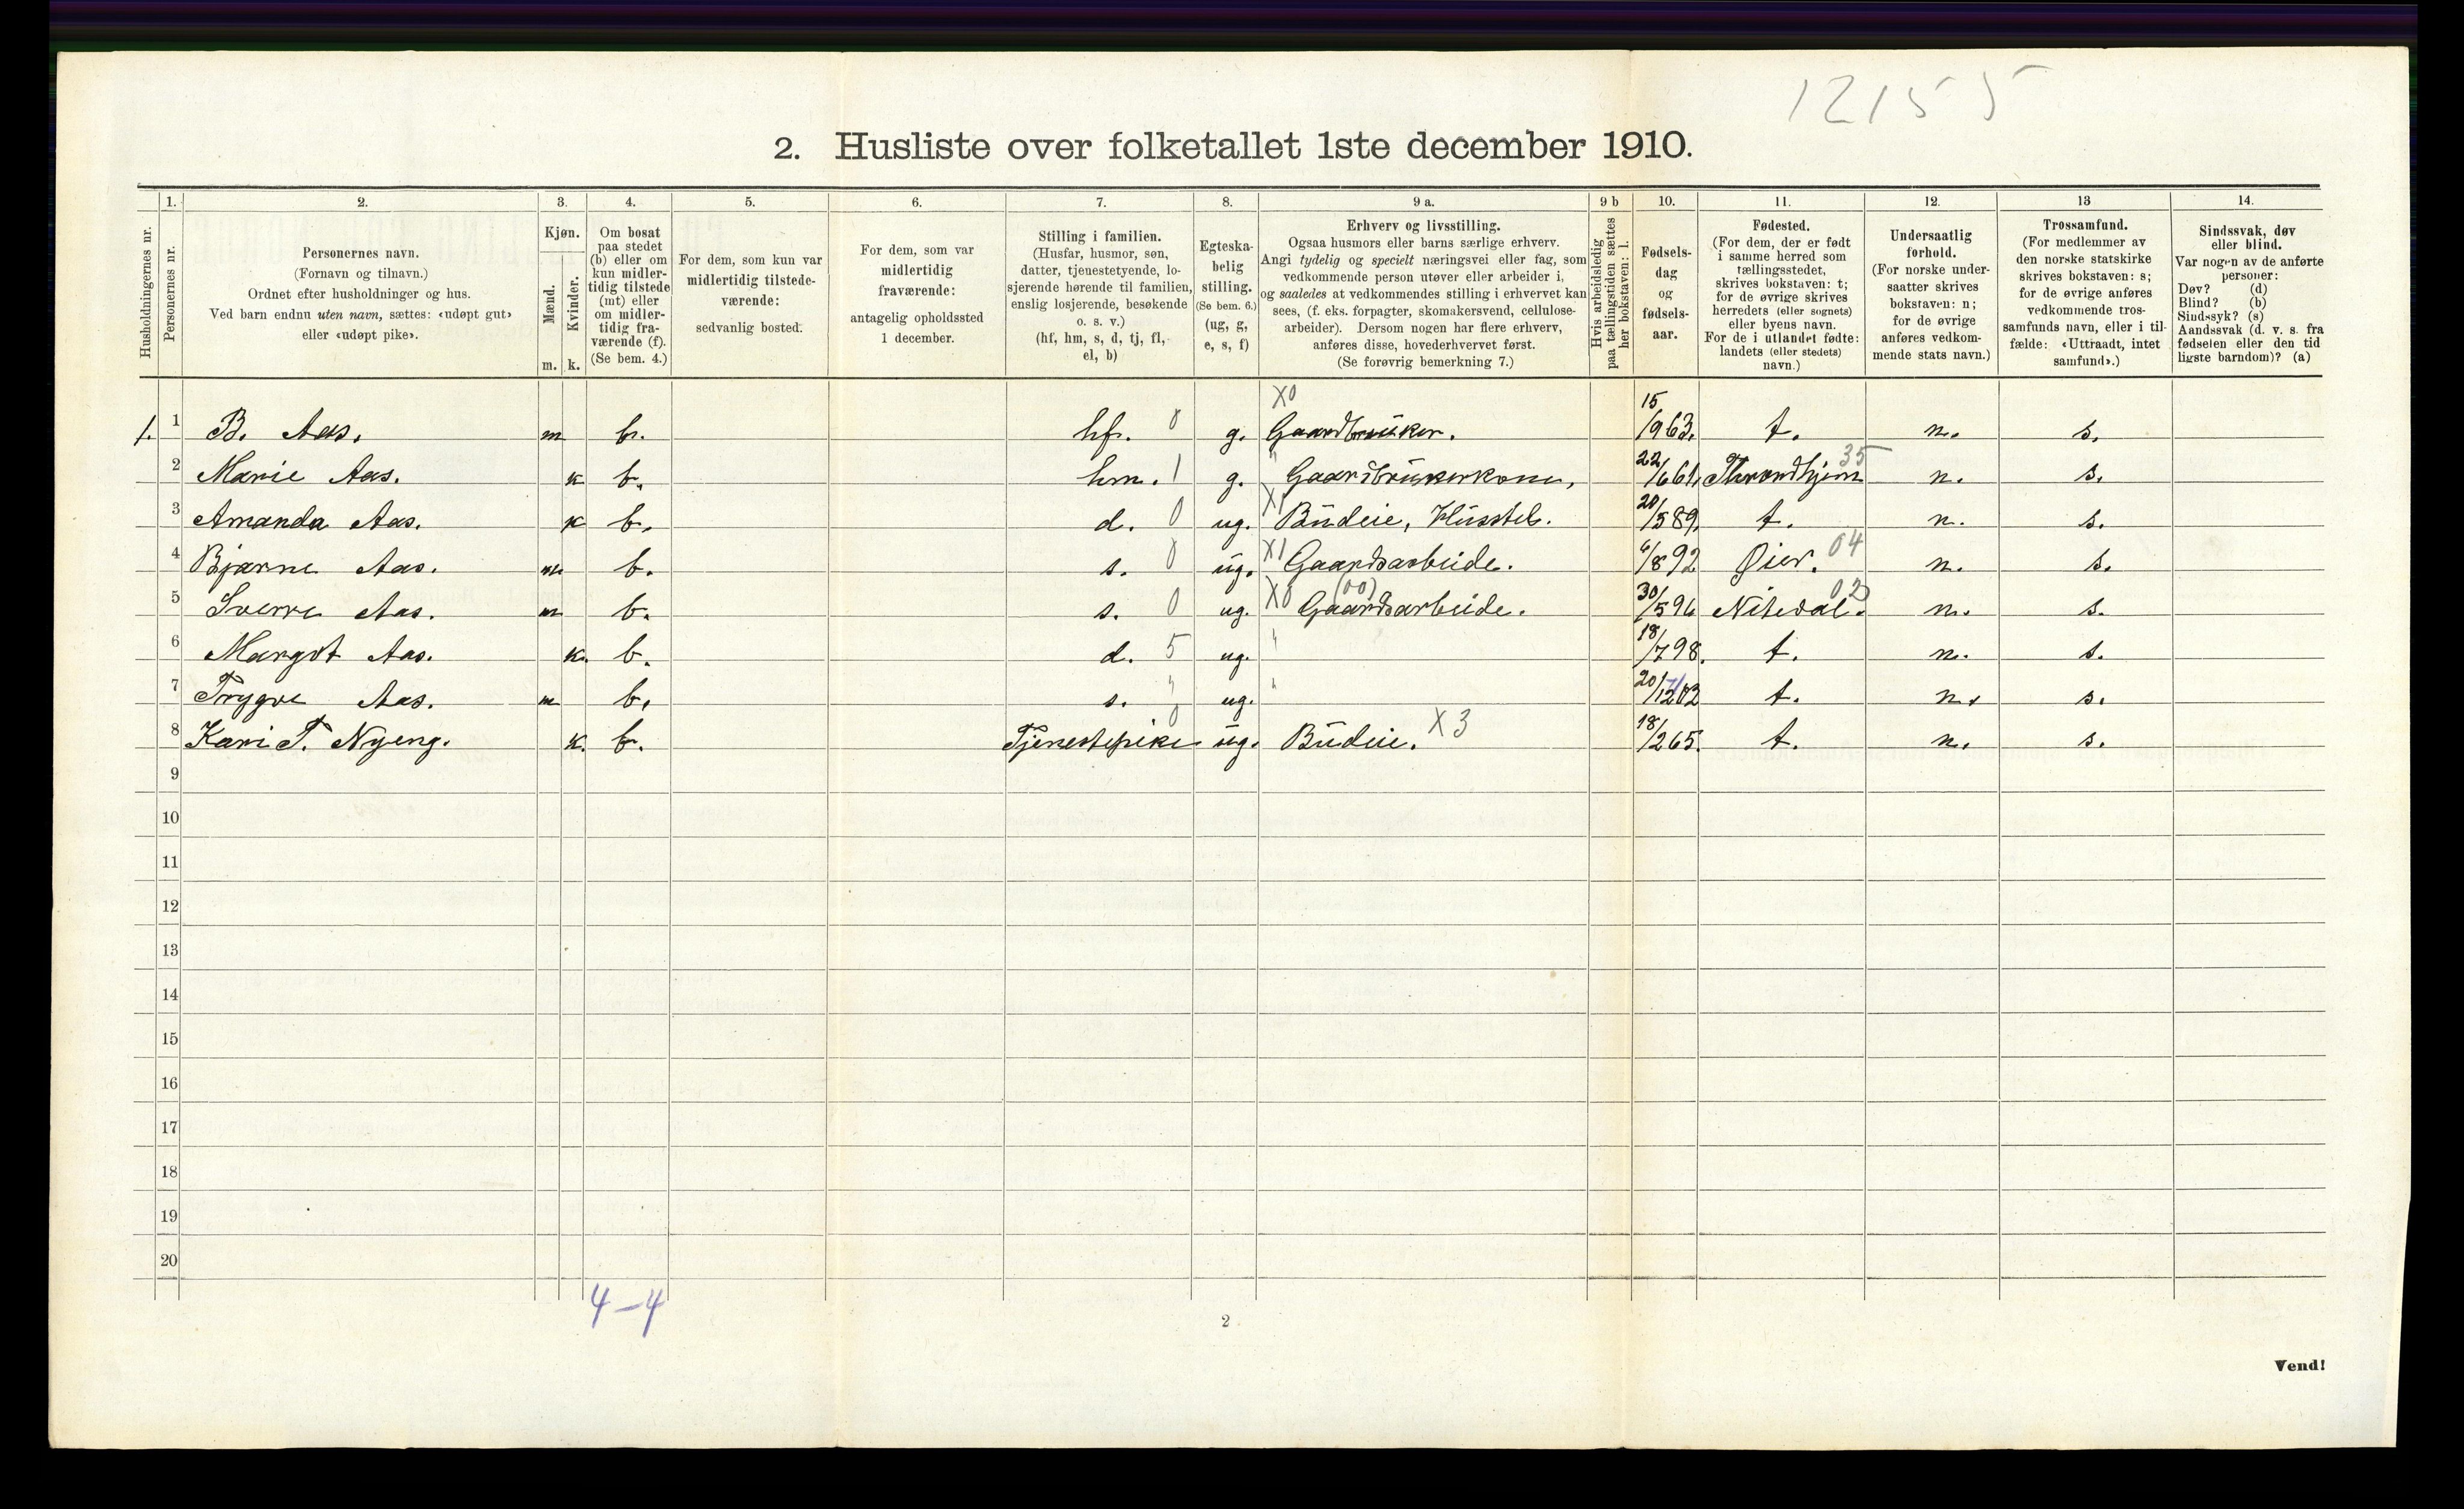 12155
2. Husliste over folketallet 1ste december 1910.
Husholdningernes nr.
1. Personernes nr.
2. Personernes navn.
(Fornavn og tilnavn.)
Ordnet efter husholdninger og hus.
Ved barn endnu uten navn, sættes: «udøpt gut»
eller «udøpt pike».
3. Kjøn.
Mænd. Kvinder.
m. k.
4. Om bosat
paa stedet
(b) eller om
kun midler-
tidig tilstede
(mt) eller
om midler-
tidig fra-
værende (f).
(Se bem. 4.)
5. For dem, som kun var
midlertidig tilstede-
værende:
sedvanlig bosted.
6. For dem, som var
midlertidig
fraværende:
antagelig opholdssted
1 december.
7. Stilling i familien.
(Husfar, husmor, søn,
datter, tjenestetyende, lo-
sjerende hørende til familien,
enslig losjerende, besøkende
o. s. v.)
(hf, hm, s, d, tj, fl,
el, b)
8. Egteska-
belig
stilling.
(Se bem. 6.)
(ug, g,
e, s, f)
9 a. Erhverv og livsstilling.
Ogsaa husmors eller barns særlige erhverv.
Angi tydelig og specielt næringsvei eller fag, som
vedkommende person utøver eller arbeider i,
og saaledes at vedkommendes stilling i erhvervet kan
sees, (f. eks. forpagter, skomakersvend, cellulose-
arbeider). Dersom nogen har flere erhverv,
anføres disse, hovederhvervet først.
(Se forøvrig bemerkning 7.)
9 b Hvis arbeidsledig
paa tællingstiden sættes
her bokstaven: l.
10. Fødsels-
dag
og
fødsels-
aar.
11. Fødested.
(For dem, der er født
i samme herred som
tællingsstedet,
skrives bokstaven: t;
for de øvrige skrives
herredets (eller sognets)
eller byens navn.
For de i utlandet fødte:
landets (eller stedets)
navn.)
12. Undersaatlig
forhold.
(For norske under-
saatter skrives
bokstaven: n;
for de øvrige
anføres vedkom-
mende stats navn.)
13 Trossamfund.
(For medlemmer av
den norske statskirke
skrives bokstaven: s;
for de øvrige anføres
vedkommende tros-
samfunds navn, eller i til-
fælde: «Uttraadt, intet
samfund».)
14. Sindssvak, døv
eller blind.
Var nogen av de anførte
personer:
Døv? (d)
Blind? (b)
Sindssyk? (s)
Aandssvak (d. v. s. fra
fødselen eller den tid
ligste barndom)? (a)
X0
1. 1 B. Aas. m b. hf. 0 g. Gaardbruker. 15/9 63. t. n. s.
2 Marie Aas. k b. hm. 1 g. " Gaardbrukerkone. 22/6 61. Throndhjem 35 n. s.
3 Amanda Aas. k b. d. 0 ug. X1 Budeie, Husstel. 20/5 89. t. n. s.
4 Bjarne Aas. m b. s. 0 ug. X1 Gaardsarbeide. 6/8 92 Øier. 04 n. s.
5 Sverre Aas. m b. s. 0 ug. X0 (00) Gaardsarbeide. 30/5 96 Nitedal. 02 n. s.
6 Margot Aas. k. b. d. 5 ug. " 18/7 98. t. n. s.
7 Trygve Aas. m b. s. " ug. " 20/12 03 t. n. s.
8 Kari T. Nyeng. k. b. Tjenestepike 0 ug. Budeie. X3 18/2 65. t. n. s.
9
10
11
12
13
14
15
16
17
18
19
20
4–4
2
Vend!